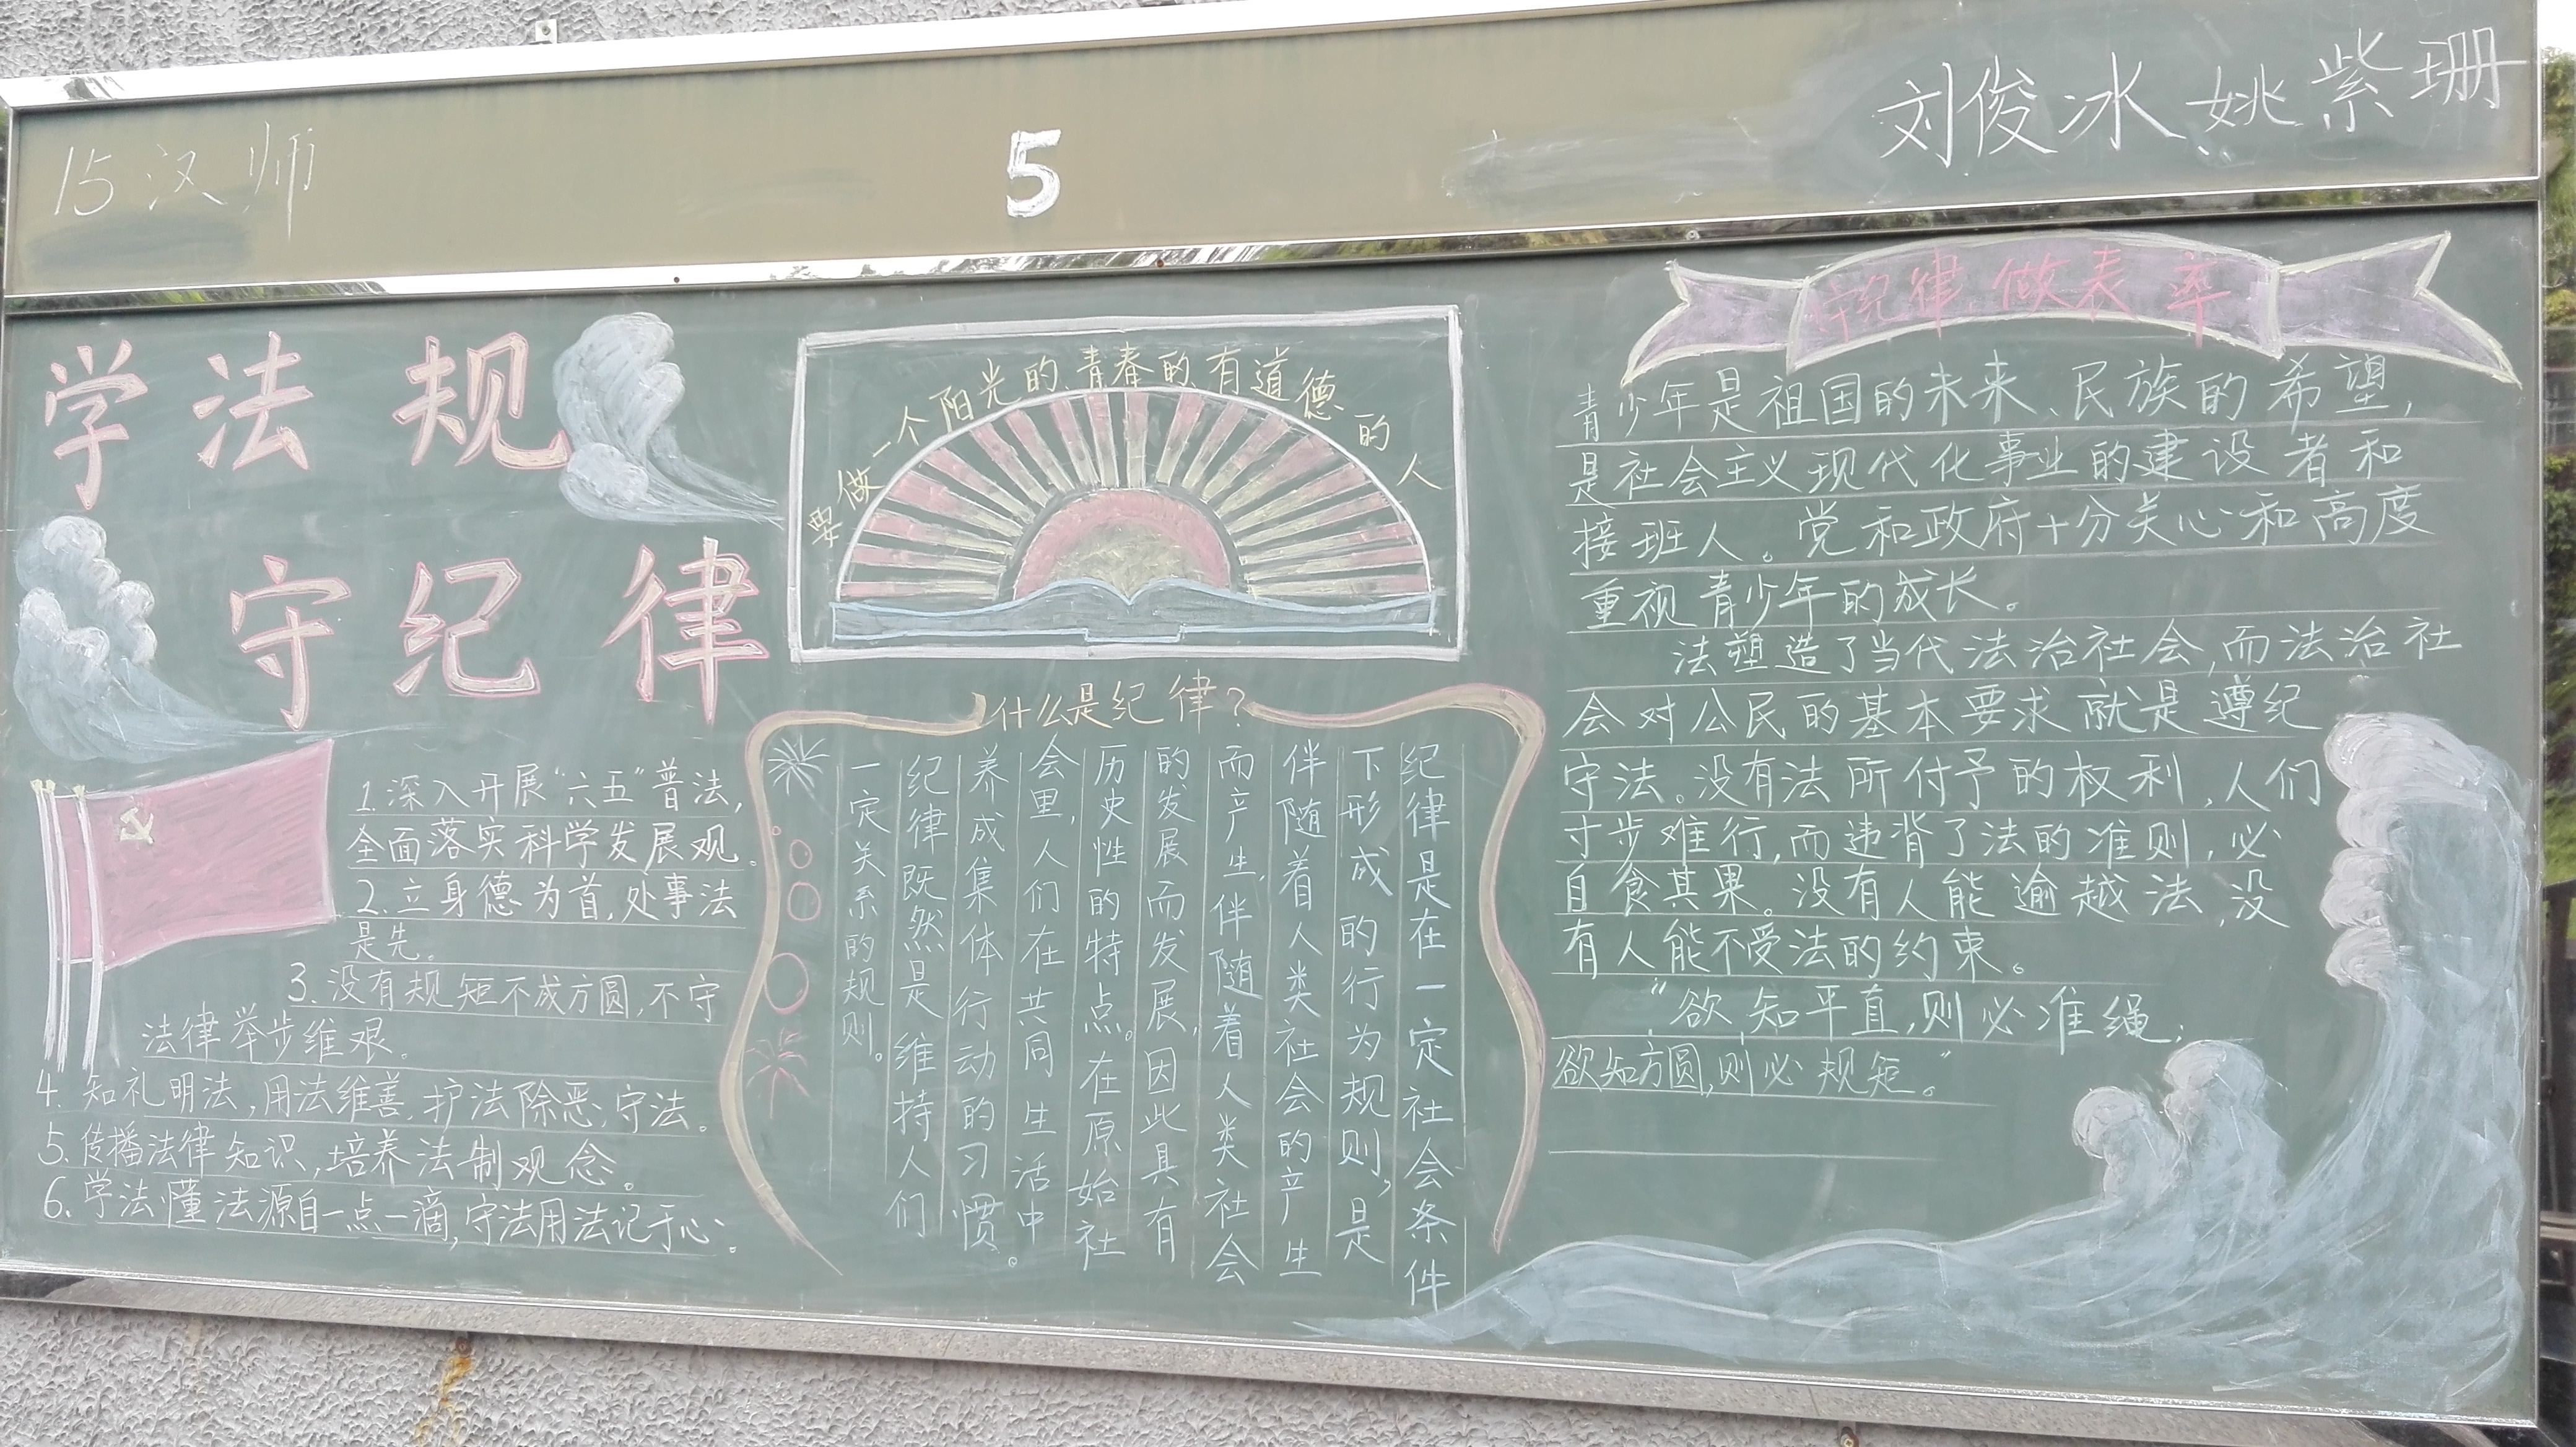 15汉师
5
刘俊冰、姚紫珊
学法规
守纪律
1.深入开展“六五”普法,
全面落实科学发展观。
2.立身德为首,处事法
是先。
3.没有规矩不成方圆,不守
法律举步维艰。
4.知礼明法,用法维善,护法除恶,守法。
5.传播法律知识,培养法制观念。
6.学法懂法源自一点一滴,守法用法记于心。
要做一个阳光的、青春的、有道德的人
什么是纪律?
纪律是在一定社会条件
下形成的行为规则,是
伴随着人类社会的产生
而产生,伴随着人类社会
的发展而发展,因此具有
历史性的特点。在原始社
会里,人们在共同生活中
养成集体行动的习惯。
纪律既然是维持人们
一定关系的规则。
守纪律、做表率
青少年是祖国的未来、民族的希望,
是社会主义现代化事业的建设者和
接班人。党和政府十分关心和高度
重视青少年的成长。
法塑造了当代法治社会,而法治社
会对公民的基本要求就是遵纪
守法。没有法所付予的权利,人们
寸步难行,而违背了法的准则,必
自食其果。没有人能逾越法,没
有人能不受法的约束。
“欲知平直,则必准绳;
欲知方圆,则必规矩。”